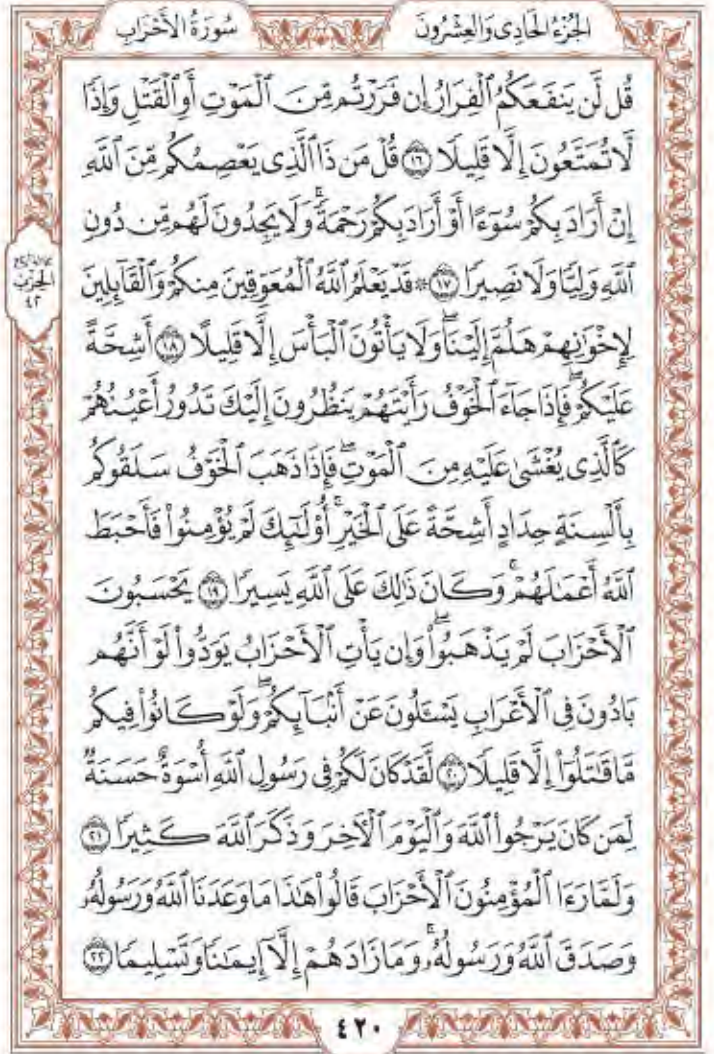 الجُزْءُ الحَادِي وَالعِشْرُونَ
سُورَةُ الأَحْزَابِ
قُل لَّن يَنفَعَكُمُ ٱلْفِرَارُ إِن فَرَرْتُم مِّنَ ٱلْمَوْتِ أَوِ ٱلْقَتْلِ وَإِذًا
لَّا تُمَتَّعُونَ إِلَّا قَلِيلًا ١٦ قُلْ مَن ذَا ٱلَّذِى يَعْصِمُكُم مِّنَ ٱللَّهِ
إِنْ أَرَادَ بِكُمْ سُوٓءًا أَوْ أَرَادَ بِكُمْ رَحْمَةًۚ وَلَا يَجِدُونَ لَهُم مِّن دُونِ
ٱللَّهِ وَلِيًّا وَلَا نَصِيرًا ١٧ ۞ قَدْ يَعْلَمُ ٱللَّهُ ٱلْمُعَوِّقِينَ مِنكُمْ وَٱلْقَآئِلِينَ
لِإِخْوَٰنِهِمْ هَلُمَّ إِلَيْنَاۖ وَلَا يَأْتُونَ ٱلْبَأْسَ إِلَّا قَلِيلًا ١٨ أَشِحَّةً
عَلَيْكُمْۖ فَإِذَا جَآءَ ٱلْخَوْفُ رَأَيْتَهُمْ يَنظُرُونَ إِلَيْكَ تَدُورُ أَعْيُنُهُمْ
كَٱلَّذِى يُغْشَىٰ عَلَيْهِ مِنَ ٱلْمَوْتِۖ فَإِذَا ذَهَبَ ٱلْخَوْفُ سَلَقُوكُم
بِأَلْسِنَةٍ حِدَادٍ أَشِحَّةً عَلَى ٱلْخَيْرِۚ أُوْلَٰٓئِكَ لَمْ يُؤْمِنُوا۟ فَأَحْبَطَ
ٱللَّهُ أَعْمَٰلَهُمْۚ وَكَانَ ذَٰلِكَ عَلَى ٱللَّهِ يَسِيرًا ١٩ يَحْسَبُونَ
ٱلْأَحْزَابَ لَمْ يَذْهَبُوا۟ۖ وَإِن يَأْتِ ٱلْأَحْزَابُ يَوَدُّوا۟ لَوْ أَنَّهُم
بَادُونَ فِى ٱلْأَعْرَابِ يَسْـَٔلُونَ عَنْ أَنۢبَآئِكُمْۖ وَلَوْ كَانُوا۟ فِيكُم
مَّا قَٰتَلُوٓا۟ إِلَّا قَلِيلًا ٢٠ لَّقَدْ كَانَ لَكُمْ فِى رَسُولِ ٱللَّهِ أُسْوَةٌ حَسَنَةٌ
لِّمَن كَانَ يَرْجُوا۟ ٱللَّهَ وَٱلْيَوْمَ ٱلْءَاخِرَ وَذَكَرَ ٱللَّهَ كَثِيرًا ٢١
وَلَمَّا رَءَا ٱلْمُؤْمِنُونَ ٱلْأَحْزَابَ قَالُوا۟ هَٰذَا مَا وَعَدَنَا ٱللَّهُ وَرَسُولُهُۥ
وَصَدَقَ ٱللَّهُ وَرَسُولُهُۥۚ وَمَا زَادَهُمْ إِلَّآ إِيمَٰنًا وَتَسْلِيمًا ٢٢
الحِزْب
٤٢
٤٢٠